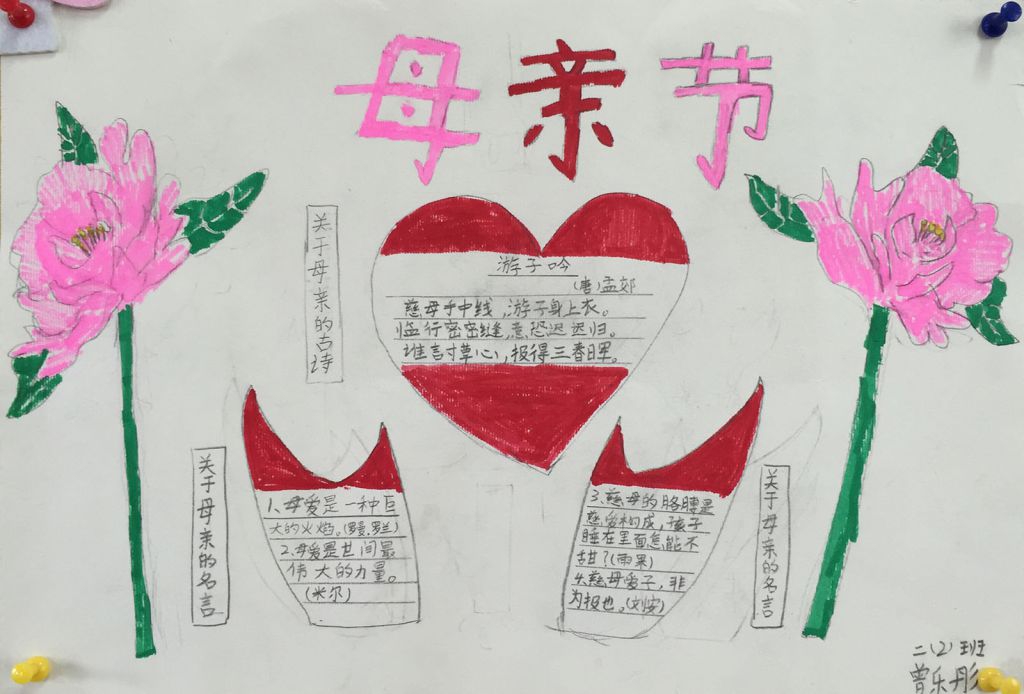 母亲节
关于母亲的古诗
游子吟
(唐)孟郊
慈母手中线,游子身上衣。
临行密密缝,意恐迟迟归。
谁言寸草心,报得三春晖。
关于母亲的名言
1、母爱是一种巨
大的火焰。(罗曼.罗兰)
2.母爱是世间最
伟大的力量。
(米尔)
3.慈母的胳膊是
慈爱构成,孩子
睡在里面怎能不
甜?(雨果)
4.慈母爱子,非
为报也。(刘安)
关于母亲的名言
二(2)班
曾乐彤